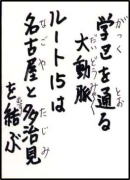 がっく とお
学区を通る
だいどうみゃく
大動脈
ルート15は
なごや たじみ
名古屋と多治見
むす
を結ぶ